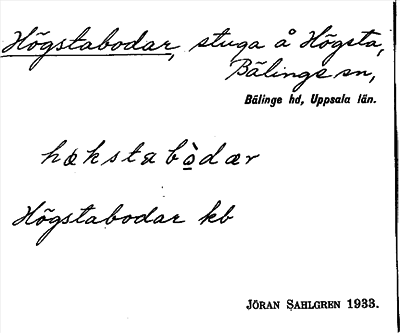 Högstabodar, stuga å Högsta,
Bälinge sn,
Bälinge hd, Uppsala län.
hækstabo̱̍dær
Högstabodar kb
JÖRAN SAHLGREN 1933.